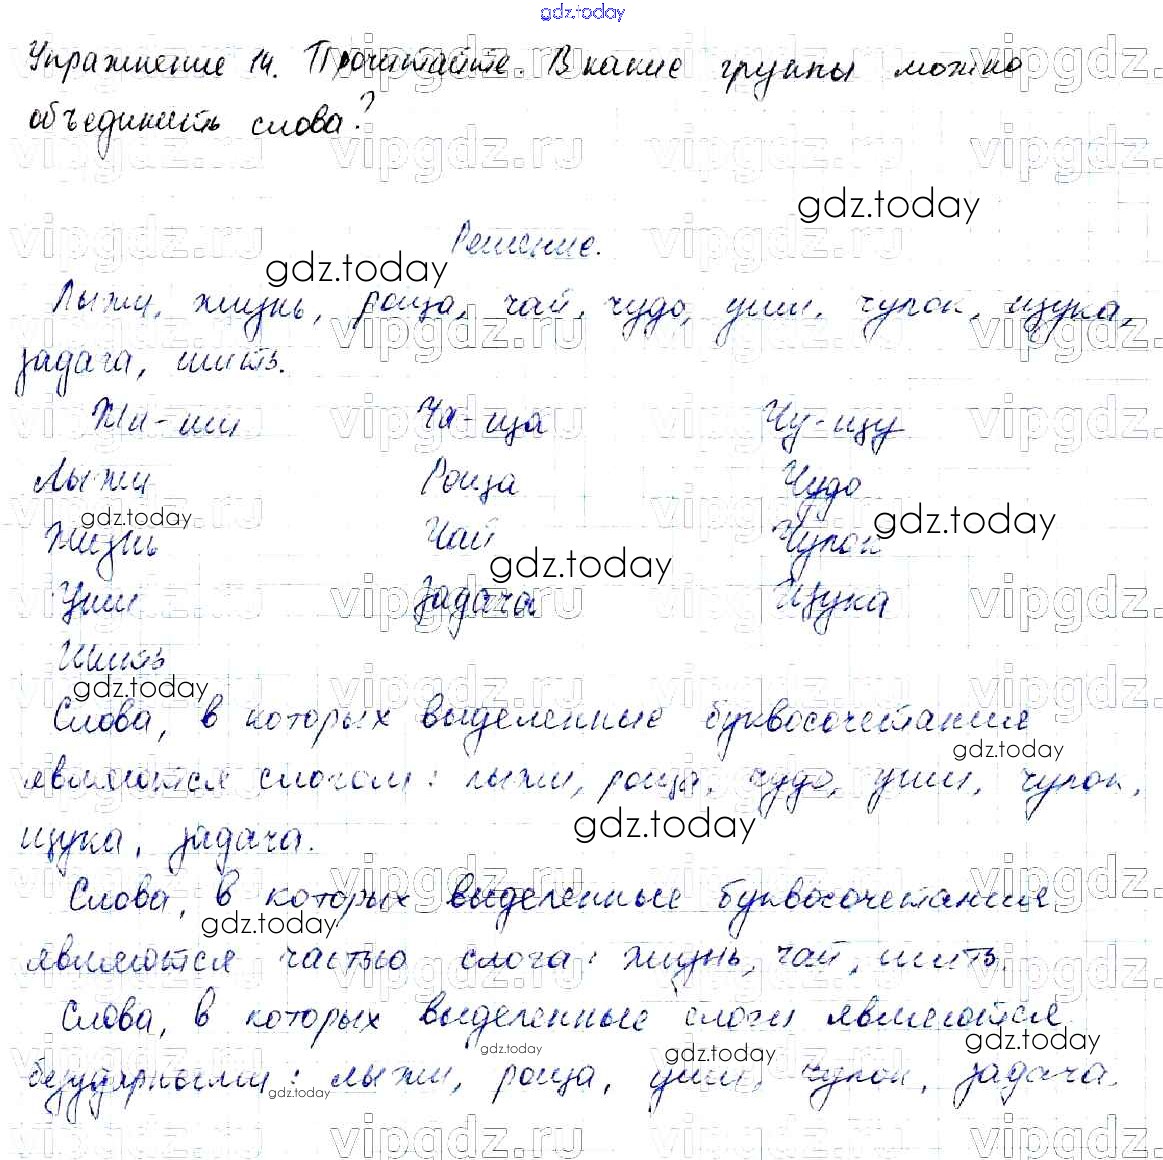 gdz.today
Упражнение 14. Прочитайте. В какие группы можно
объединить слова?
gdz.today
Решение.
gdz.today
Лыжи, жизнь, роща, чай, чудо, уши, чулок, щука,
задача, шить.
Жи-ши Ча-ща Чу-щу
Лыжи Роща Чудо
gdz.today gdz.today
Жизнь Чай Чулок
gdz.today
Уши Задача Щука
Шить
gdz.today
Слова, в которых выделенные буквосочетания
gdz.today
являются слогом: лыжи, роща, чудо, уши, чулок,
gdz.today
щука, задача.
Слова, в которых выделенные буквосочетания
gdz.today
являются частью слога: жизнь, чай, шить.
Слова, в которых выделенные слоги являются
gdz.today gdz.today gdz.today
безударными: лыжи, роща, уши, чулок, задача.
gdz.today
vipgdz.ru